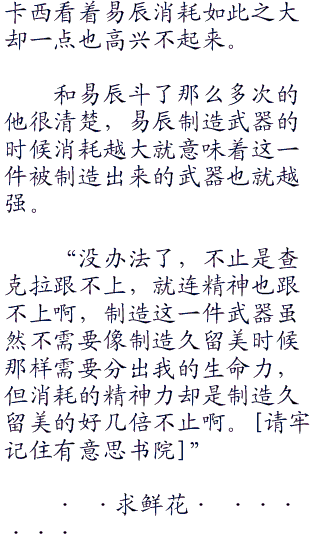 卡西看着易辰消耗如此之大
却一点也高兴不起来。
和易辰斗了那么多次的
他很清楚，易辰制造武器的
时候消耗越大就意味着这一
件被制造出来的武器也就越
强。
“没办法了，不止是查
克拉跟不上，就连精神也跟
不上啊，制造这一件武器虽
然不需要像制造久留美时候
那样需要分出我的生命力，
但消耗的精神力却是制造久
留美的好几倍不止啊。[请牢
记住有意思书院]”
· ·求鲜花· ···
···